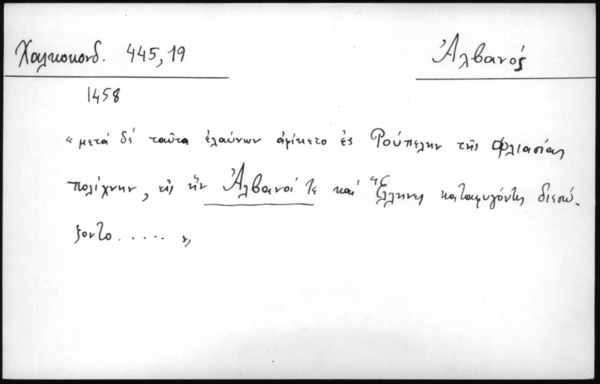 Χαλκοκονδ. 445,19
Ἀλβανός
1458
«μετά δέ ταῦτα ἐλαύνων ἀφίκετο ἐς Ῥούπελην τῆς Φλιασίας
πολίχνην, εἰς ἥν Ἀλβανοί τε καί Ἕλληνες καταφυγόντες διεσώ-
ζοντο.....»